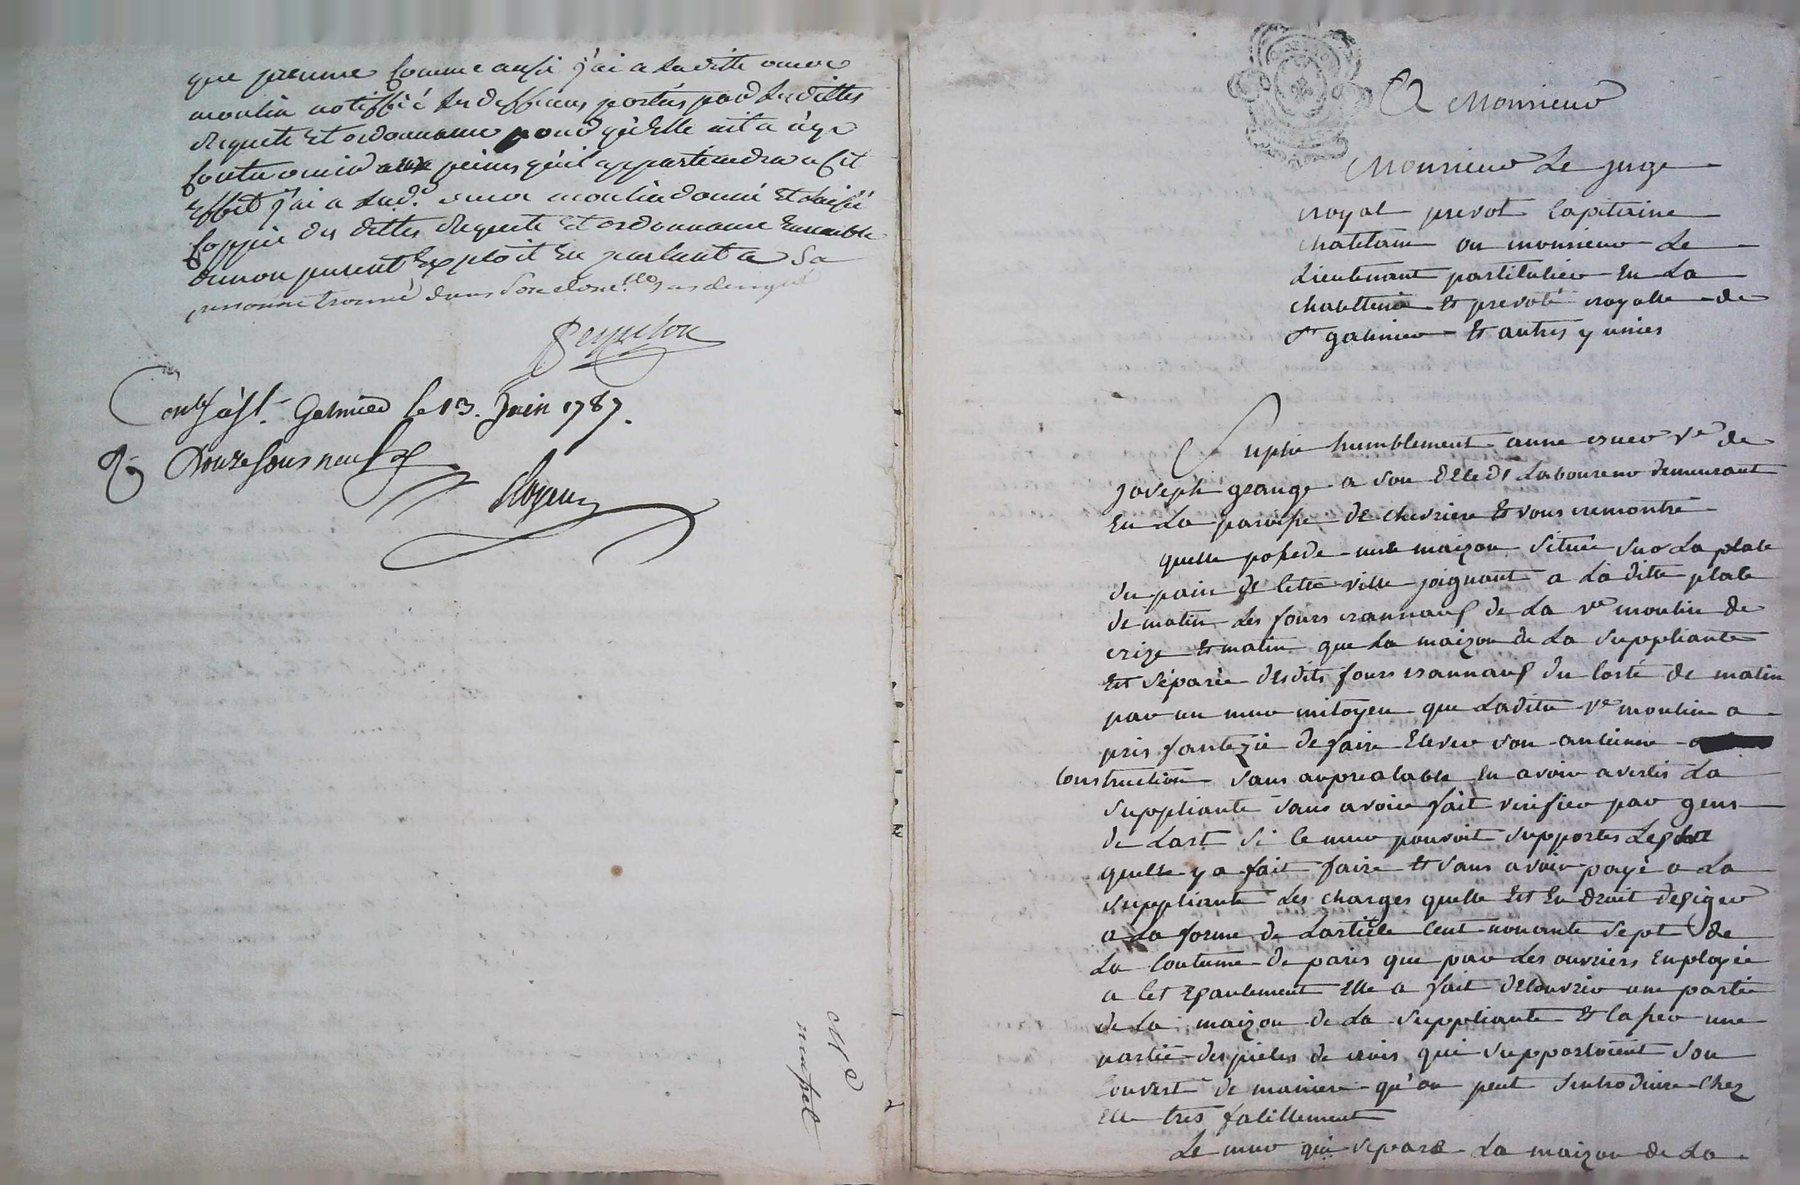 que jeanne comme ausy j'ai a la ditte anne
moulin notiffié les deffences portés par les dittes
requete et ordonnance pour qu'elle nit a i agir
contravenir aux peines qu'il appartiendra a cet
effet j'ai a lad.e anne moulin donné et laissé
coppie des dittes requete et ordonnance ensemble
du mon present exploit en parlant a sa
personne trouvé dans son dom.lle
Con.lé à St. Galmier le 13. Juin 1787.
R. Douze sous neuf d.
A Monsieur
Monsieur Le juge
royal prevot capitaine
chatelain ou monsieur Le
Lieutenant particulier en La
chatelenie et prevoté royalle de
St galmier et autres y unies
Suplie humblement anne v.e de
joseph grange a son decedt Laboureur demeurant
en La paroisse de chevriere et vous remontre
quelle possede une maizon située sur La place
du pain de cette ville joignant a La ditte place
de matin Les fours bannaux de La v.e moulin de
bize et matin que La maizon de La suppliante
est séparée desdits fours bannaux du costé de matin
par un mur mitoyen que Ladite v.e moulin a
pris fantezie de faire elever son ancienne
construction sans aupréalable en avoir avertis La
suppliante sans avoir fait verifier par gens
de Lart si le mur pouvoit supporter
quelle y a fait faire et sans avoir payé a La
suppliante Les charges quelle est en droit dexiger
a La forme de Larticle cent nonante sept de
La Coutume de paris que par Les ouvriers employée
a cet epaulement elle a fait decouvrir une partie
de La maizon de La suppliante et casser une
partie des pieces de bois qui supportoient son
couvert de maniere qu'on peut sintroduire chez
elle tres facillement
Le mur qui separe La maizon de La